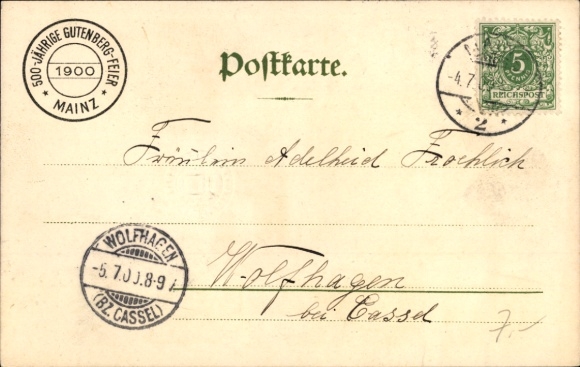 500-JÄHRIGE GUTENBERG-FEIER
1900
* MAINZ *
Postkarte.
-4.7.
* 2 *
5
PFENNIG
REICHSPOST
Fräulein Adelheid Froehlich
Wolfhagen
bei Cassel
WOLFHAGEN
-5.7.00.8-9
(BZ. CASSEL)
7,-